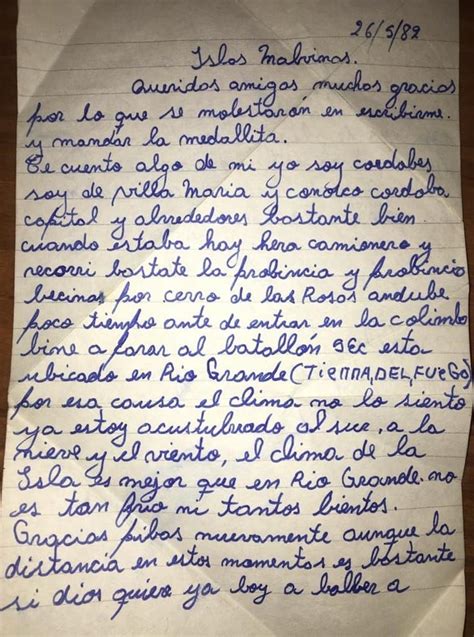 26/5/82
Islas Malvinas.
Queridos amigas muchas gracias
por lo que se molestarón en escribirme.
y mandar la medallita.
Te cuento algo de mi yo soy cordobes
soy de villa Maria y conosco cordoba
capital y alrededores bastante bien
cuando estaba hay hera camionero y
recorri bastate la probincia y probincia
becinas por cerro de las Rosas andube
poco tiempo ante de entrar en la colimba
bine a parar al batallón 5Ec esta
ubicado en Rio Grande (TiERRA,DEL,FUEGO)
por esa causa el clima no lo siento
ya estoy acustubrado al sur, a la
nieve y el viento, el clima de la
Isla es mejor que en Rio Grande. no
es tan frio ni tantos bientos.
Gracias pibas nuevamente aunque la
distancia en estos momentos es bastante
si dios quiere ya boy a bolber a